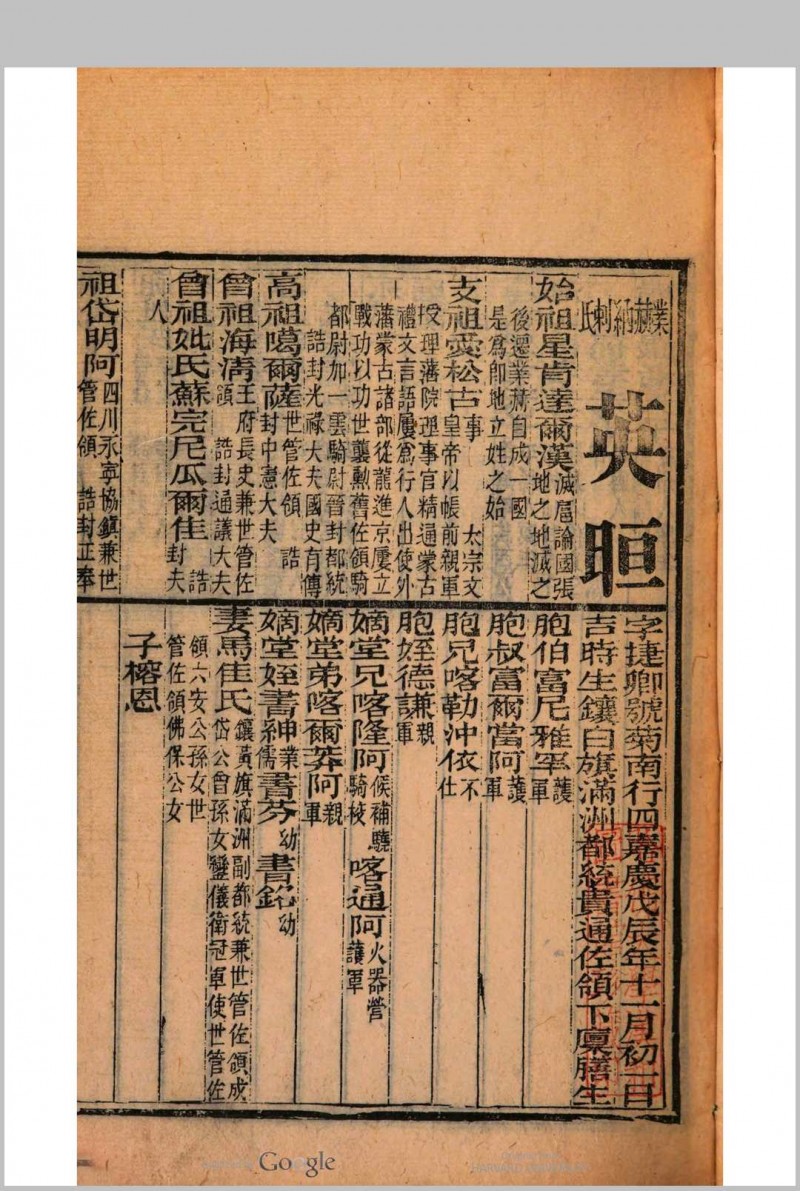 葉赫納喇氏
英晅
字捷卿號菊南行四嘉慶戊辰年十一月初一日
吉時生鑲白旗滿洲都統貴通佐領下廩膳生
始祖星肯達爾漢滅扈論國張
地之地滅之
後遷業赫自成一國
是爲卽地立姓之始
支祖愛松古事 太宗文
皇帝以帳前親軍
授理藩院理事官精通蒙古
禮文言語屢爲行人出使外
藩蒙古諸部從龍進京屢立
戰功以功世襲勳舊佐領騎
都尉加一雲騎尉晉封都統
誥封光祿大夫國史有傳
高祖噶爾薩世管佐領 誥
封中憲大夫
曾祖海清王府長史兼世管佐
領 誥封通議大夫
曾祖妣氏蘇完尼瓜爾佳 誥
封夫
人
祖岱明阿四川永寧協鎮兼世
管佐領 誥封正奉
胞伯富尼雅罕護
軍
胞叔富爾當阿護
軍
胞兄喀勒沖依不
仕
胞姪德謙親
軍
嫡堂兄喀隆阿候補驍
騎校
喀通阿火器營
護軍
嫡堂弟喀爾莽阿親
軍
嫡堂姪書紳業
儒
書芬幼 書銘幼
妻馬佳氏鑲黃旗滿洲副都統兼世管佐領成
岱公曾孫女鑾儀衛冠軍使世管佐
領六安公孫女世
管佐領佛保公女
子榕恩
Google